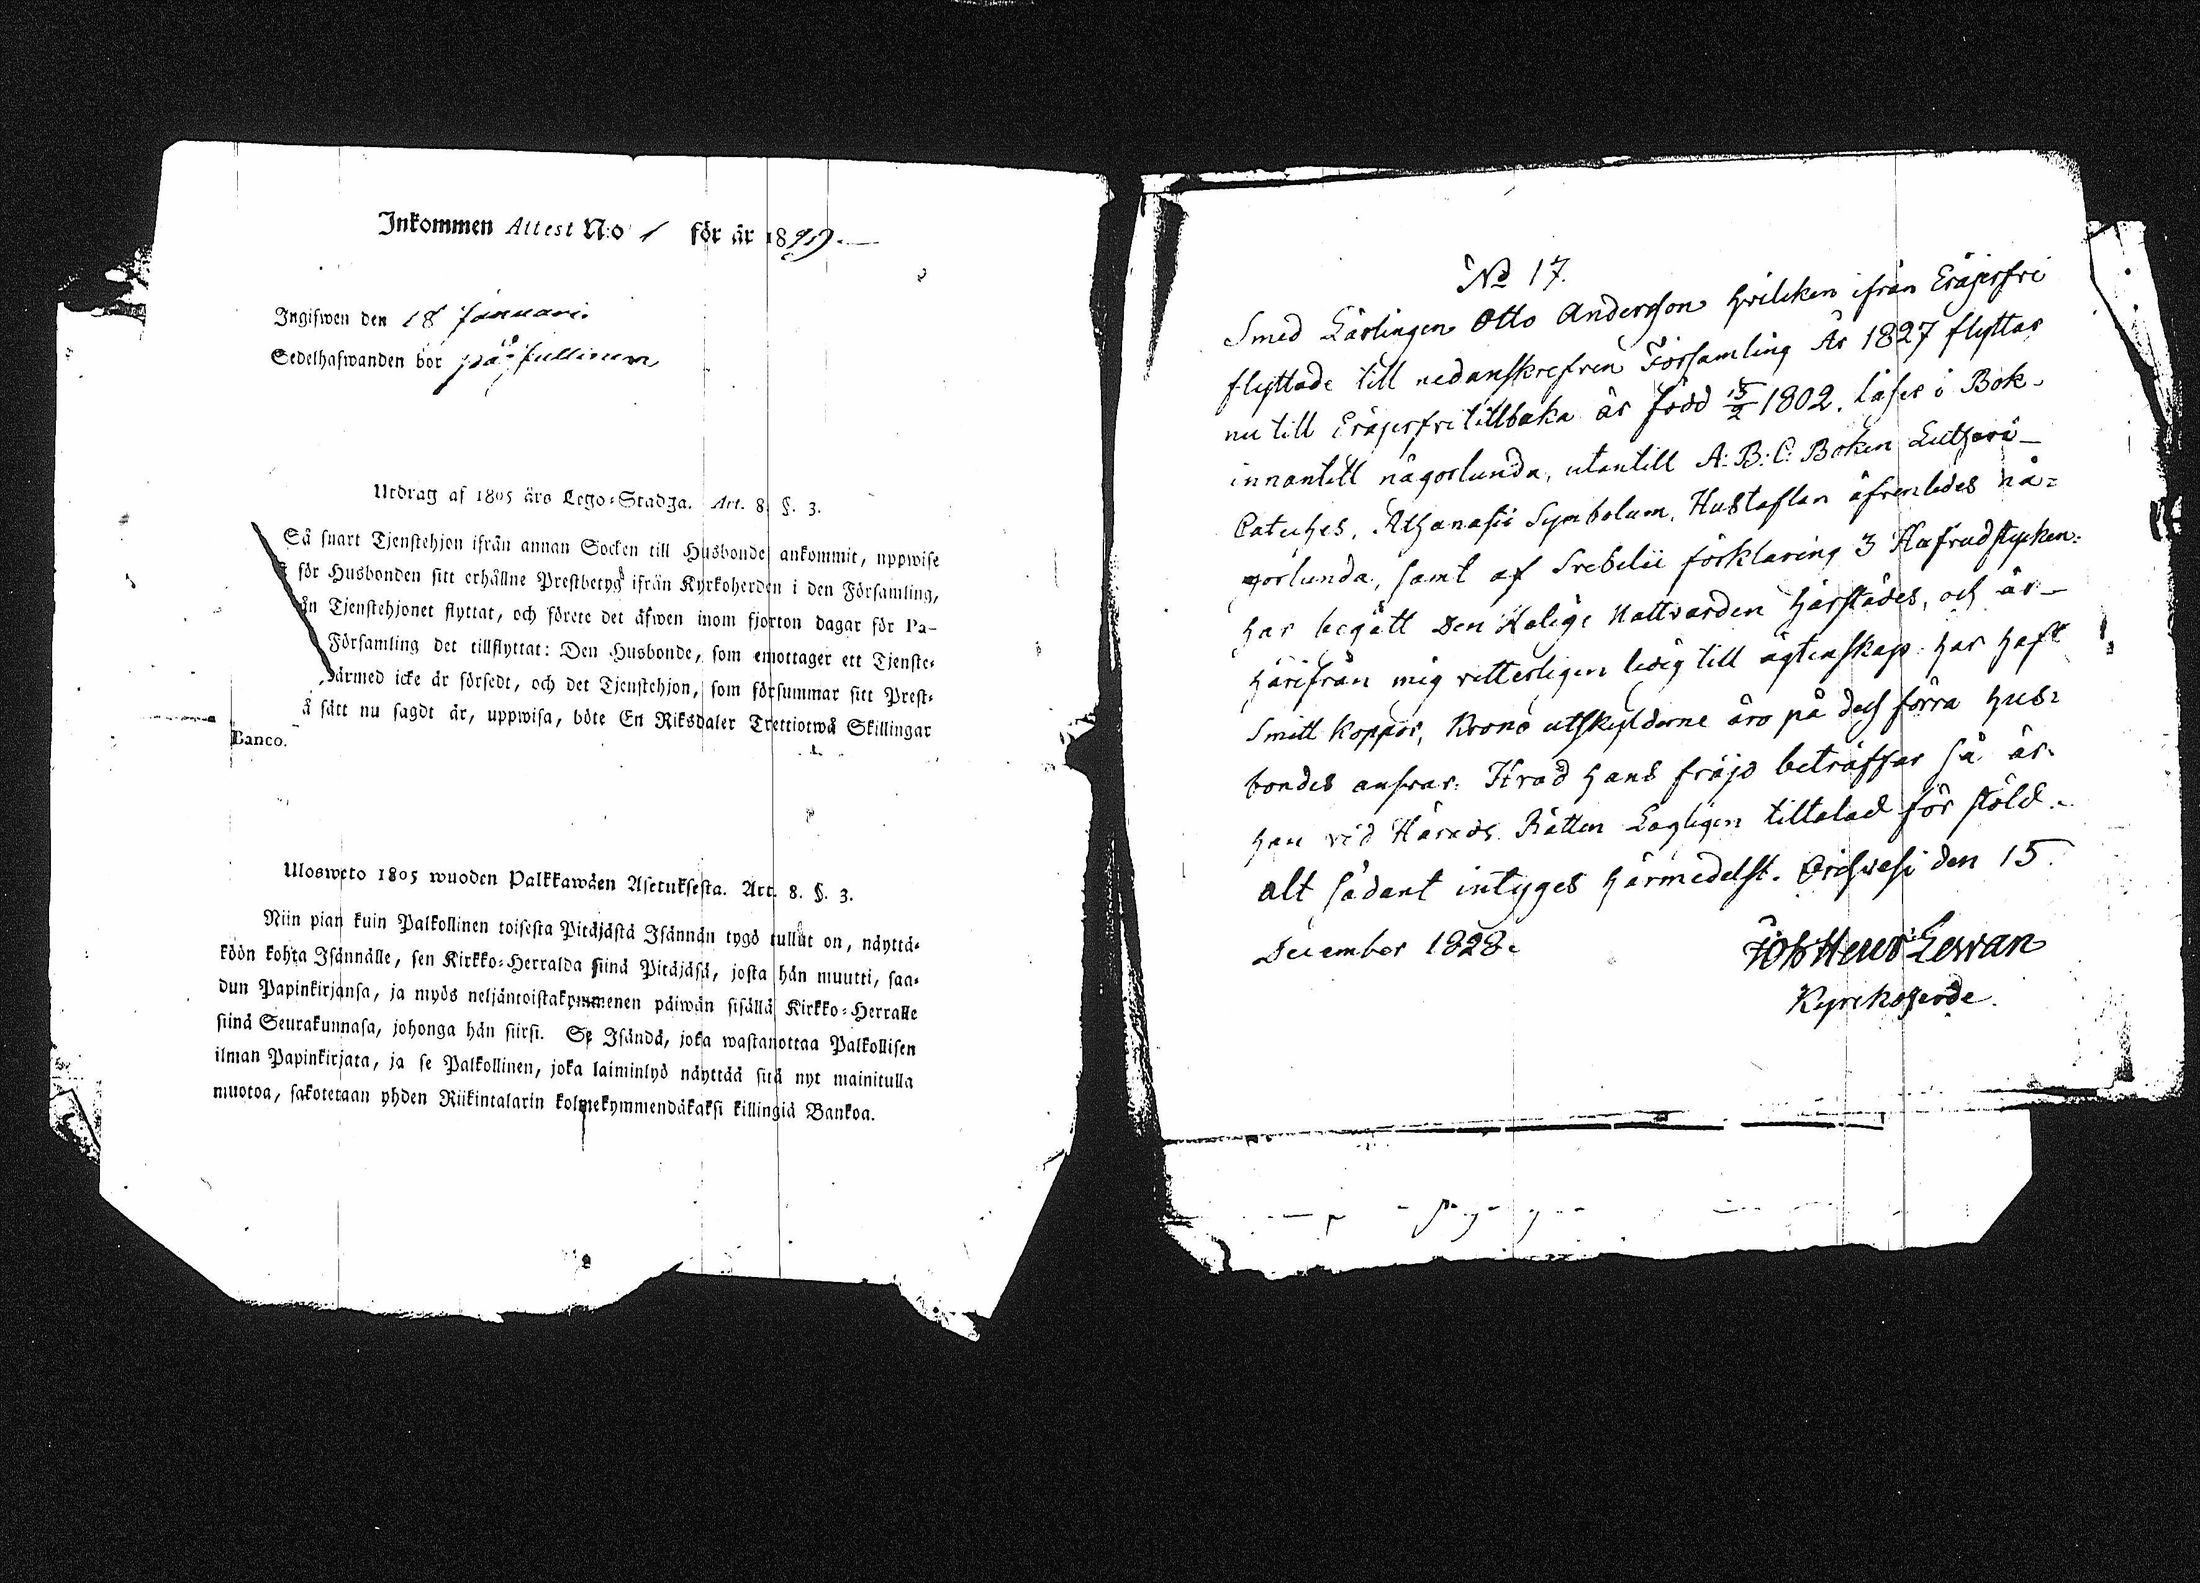 Inkommen Attest N:o 1 för år 1829.
Ingifwen den 18 Januari.
Sedelhafwanden bor på
Utdrag af 1805 års Lego-Stadga. Art. 8. §. 3.
Så snart Tjenstehjon ifrån annan Socken till Husbonde ankommit, uppwise
för Husbonden sitt erhållne Prestbetyg ifrån Kyrkoherden i den Församling,
ån Tjenstehjonet flyttat, och förete det äfwen inom fjorton dagar för Pa-
Församling det tillflyttat: Den Husbonde, som emottager ett Tjenste-
därmed icke är försedt, och det Tjenstehjon, som försummar sitt Prest-
å sätt nu sagdt är, uppwisa, böte En Riksdaler Trettiotwå Skillingar
Banco.
Ulosweto 1805 wuoden Palkkawäen Asetuksesta. Art. 8. §. 3.
Niin pian kuin Palkollinen toisesta Pitäjästä Isännän tygö tullut on, näyttä-
köön kohta Isännälle, sen Kirkko-Herralda siinä Pitäjäsä, josta hän muutti, saa-
dun Papinkirjansa, ja myös neljäntoistakymmenen päiwän sisällä Kirkko-Herralle
siinä Seurakunnasa, johonga hän siirsi. Se Isändä, joka wastanottaa Palkollisen
ilman Papinkirjata, ja se Palkollinen, joka laiminlyö näyttää sitä nyt mainitulla
muotoa, sakotetaan yhden Riikintalarin kolmekymmendäkaksi killingiä Bankoa.
No 17.
Smed Lärlingen Otto Andersson hvilcken ifrån Eräjerfvi
flyttade till nedanskrefven Församling År 1827 flyttar
nu till Eräjerfvi tillbaka är född 15/2 1802. Läser i Bok-
innantill någorlunda, utantill A: B: C: Boken Lutheri-
Cateches, Athanasii Symbolum, Hustaflan äfvenledes nå=
gorlunda, samt af Svebelii förklaring 3 Hufvudstycken:
har begått Den Helige Nattvarden härstädes, och är-
härifrån mig vetterligen ledig till ägtenskap: har haft
Smitt koppor, Krono utskylderne äro på dess förra hus=
bondes ansvar: Hvad hans fräjd beträffar så är-
han vid Härads Rätten Lagligen tilltalad för stöld.
alt sådant intyges härmedelst. Orihvesi den 15.
December 1828.
Joh Henr: Lewan
Kyrckoherde.